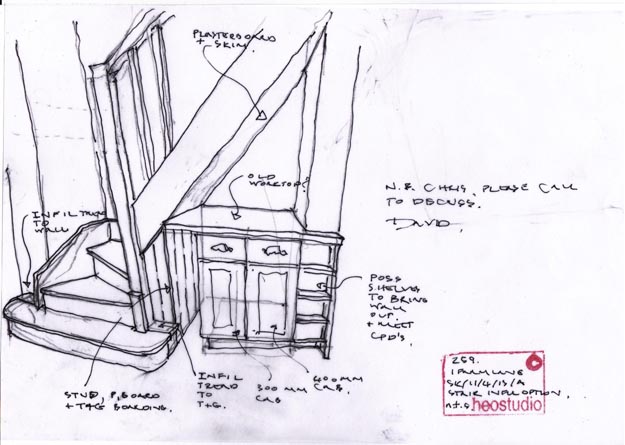 PLASTERBOARD
+ SKIM.
OLD
WORKTOP?
INFIL TREAD
TO
WALL
N.B. CHRIS, PLEASE CALL
TO DISCUSS.
DAVID.
POSS
SHELVES
TO BRING
WALL
OUT
+ MEET
CPD'S.
STUD, P,BOARD
+ T+G BOARDING.
INFIL
TREAD
TO
T+G.
300 MM
CAB
400MM
CAB.
259.
LANE
SK/11/4/13/A
STAIR INFILL OPTION.
n.t.s.
heostudio